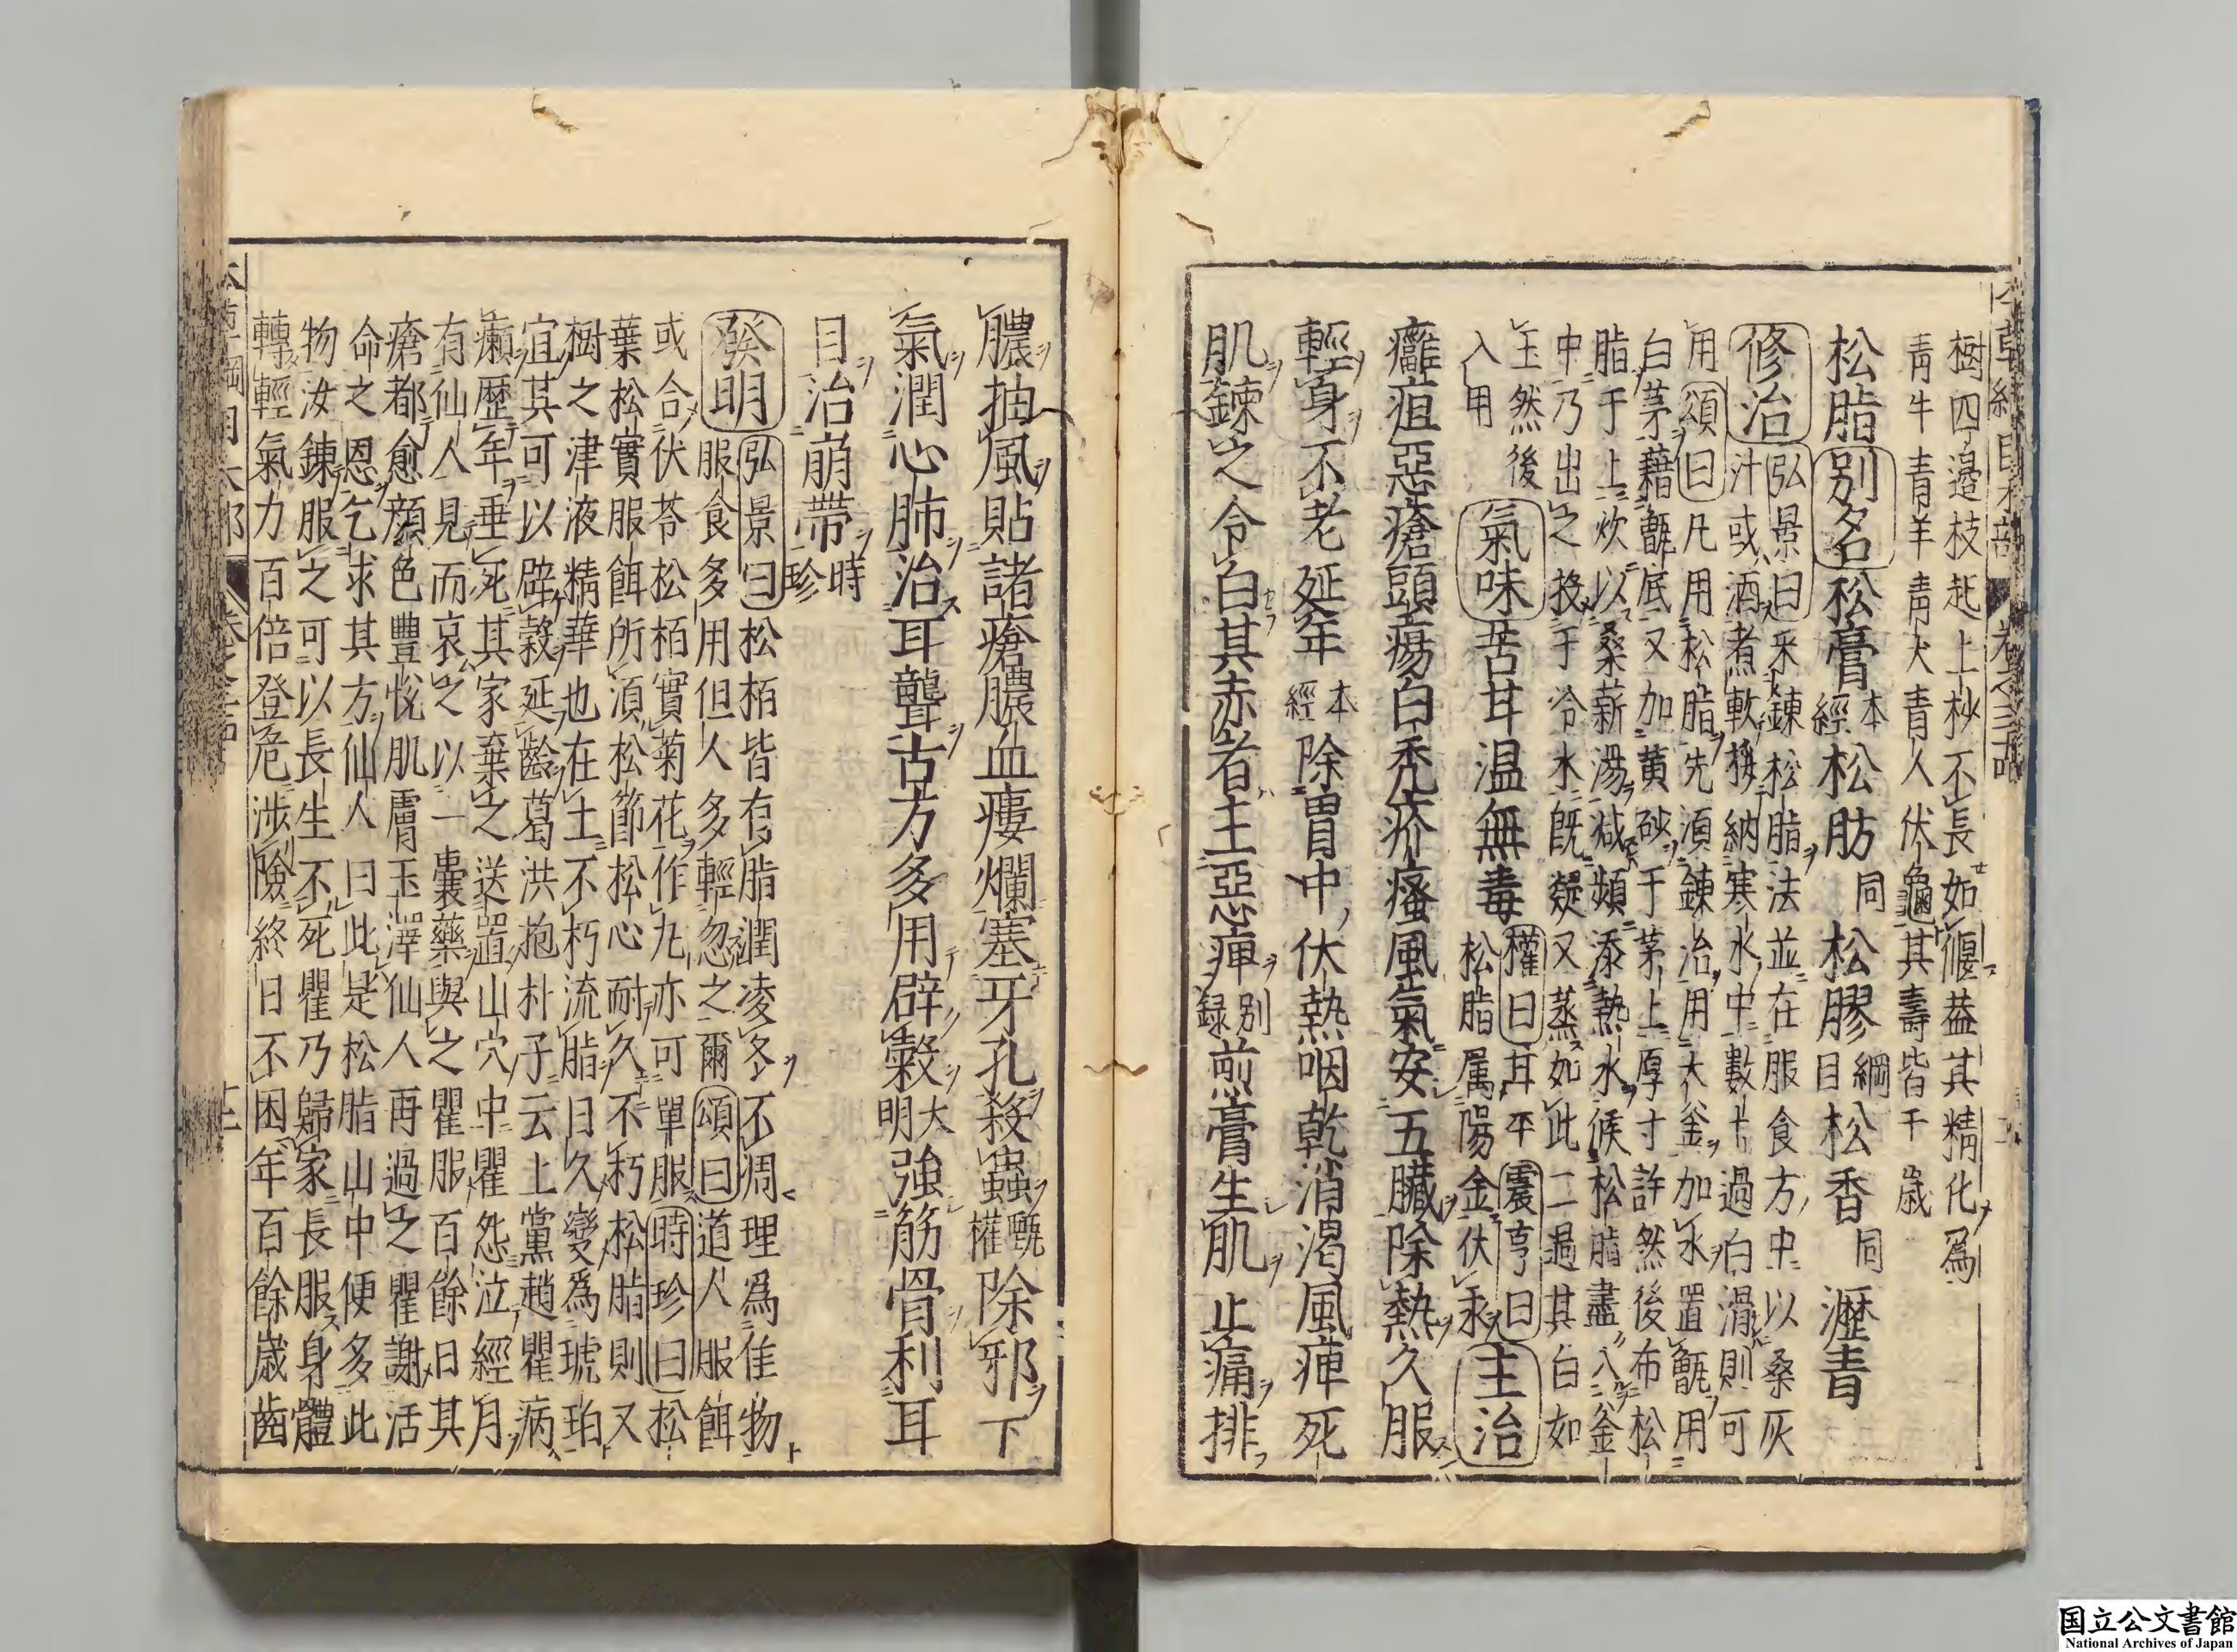 樹四邊枝起上杪不長如偃葢其精化爲
青牛青羊青犬青人伏龜其壽皆千歳
松脂別名松膏本經松肪同松膠綱目松香同瀝青
修治弘景曰采鍊松脂法並在服食方中以桑灰
汁或酒煮軟挼納寒水中數十過白滑則可
用頌曰凡用松脂先須鍊治用大釜加水置甑用
白茅藉甑底又加黄砂于茅上厚寸許然後布松
脂于上炊以桑薪湯减頻添熱水候松脂盡入釜
中乃出之投于冷水既凝又蒸如此二過其白如
玉然後
入用
氣味苦甘温無毒權曰甘平震亨曰
松脂属陽金伏汞主治
癰疽惡瘡頭瘍白禿疥瘙風氣安五臟除熱久服
輕身不老延年本經除胃中伏熱咽乾消渴風痺死
肌鍊之令白其赤者主惡痺別録煎膏生肌止痛排
膿抽風貼諸瘡膿血瘻爛塞牙孔殺蟲甄權除邪下
氣潤心肺治耳聾古方多用辟穀大明強筋骨利耳
目治崩帶時珍
發明弘景曰松栢皆有脂潤凌冬不凋理爲佳物
服食多用但人多輕忽之爾頌曰道人服餌
或合伏苓松栢實菊花作丸亦可單服時珍曰松
葉松實服餌所須松節松心耐久不朽松脂則又
樹之津液精華也在土不朽流脂日久變爲琥珀
宜其可以辟穀延齡葛洪抱朴子云上黨趙瞿病
癩歴年垂死其家棄之送置山穴中瞿怨泣經月
有仙人見而哀之以一囊藥與之瞿服百餘日其
瘡都愈顔色豐悦肌膚玉澤仙人再過之瞿謝活
命之恩乞求其方仙人曰此是松脂山中便多此
物汝鍊服之可以長生不死瞿乃歸家長服身體
轉輕氣力百倍登危涉險終日不困年百餘歳齒
国立公文書館
National Archives of Japan